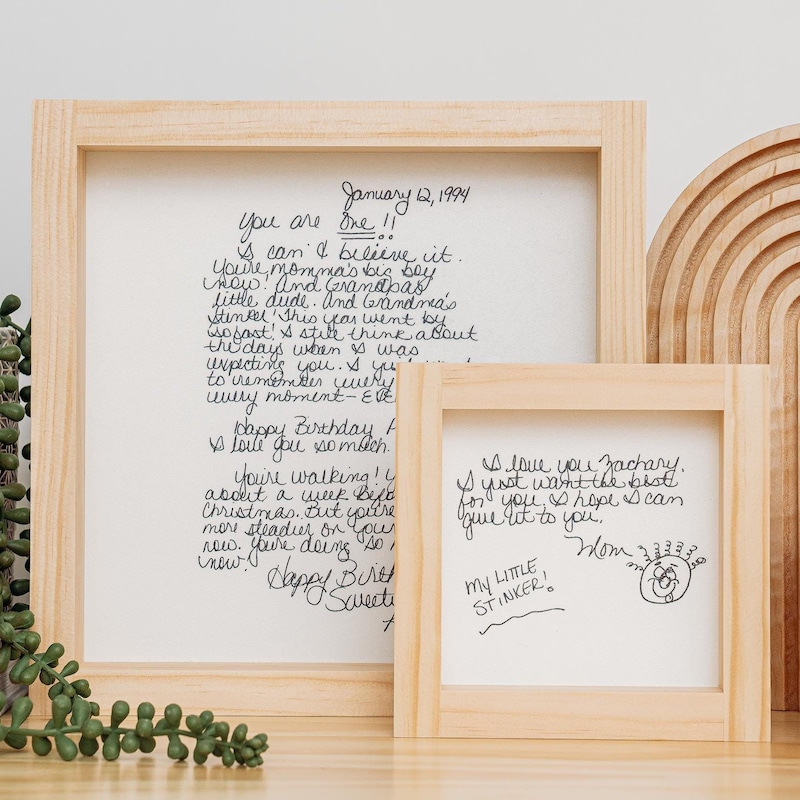 January 12, 1994
You are One!!
I can't believe it.
You're momma's big boy
now! And Grandpa's
little dude. And Grandma's
stinker! This year went by
so fast! I still think about
the days when I was
expecting you. I just want
to remember every
every moment — EVE
Happy Birthday
I love you so much.
You're walking!
about a week Before
Christmas. But you're
more steadier on your
now. You're doing so
now!
Happy Birth
Sweeti
I love you Zachary.
I just want the best
for you. I hope I can
give it to you.
Mom
MY LITTLE
STINKER!